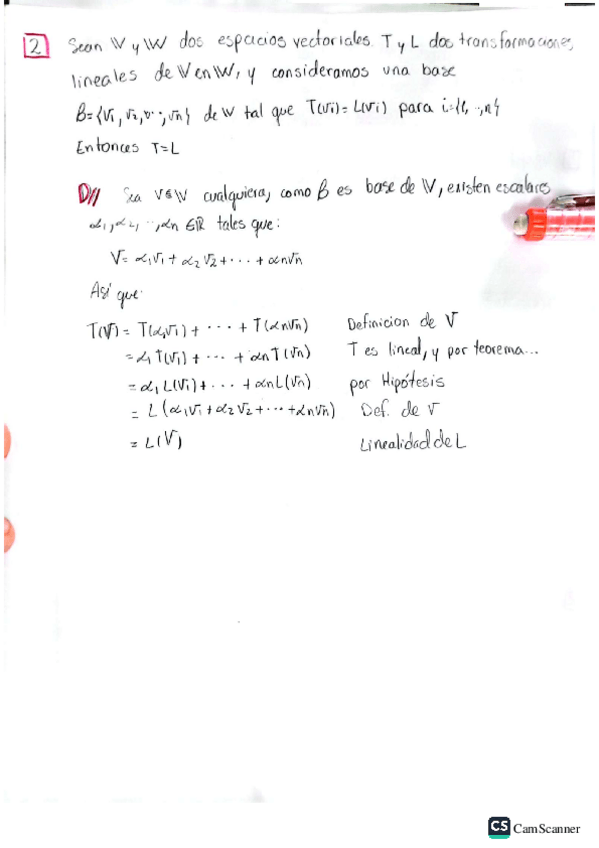 2 Sean V y W dos espacios vectoriales. T y L dos transformaciones
lineales de V en W, y consideramos una base
B={v1, v2, ..., vn} de V tal que T(vi)=L(vi) para i={1, .., n}
Entonces T=L
D// Sea V∈V cualquiera, como B es base de V, existen escalares
α1, α2, .., αn ∈ℝ tales que:
V= α1v1 + α2v2 + ... + αnvn
Así que:
T(V)= T(α1v1) + ... + T(αnvn) Definicion de V
= α1 T(v1) + ... + αn T(vn) T es lineal, y por teorema...
= α1 L(v1) + ... + αn L(vn) por Hipótesis
= L(α1v1 + α2v2 + ... + αnvn) Def. de V
= L(V) Linealidad de L
CS CamScanner